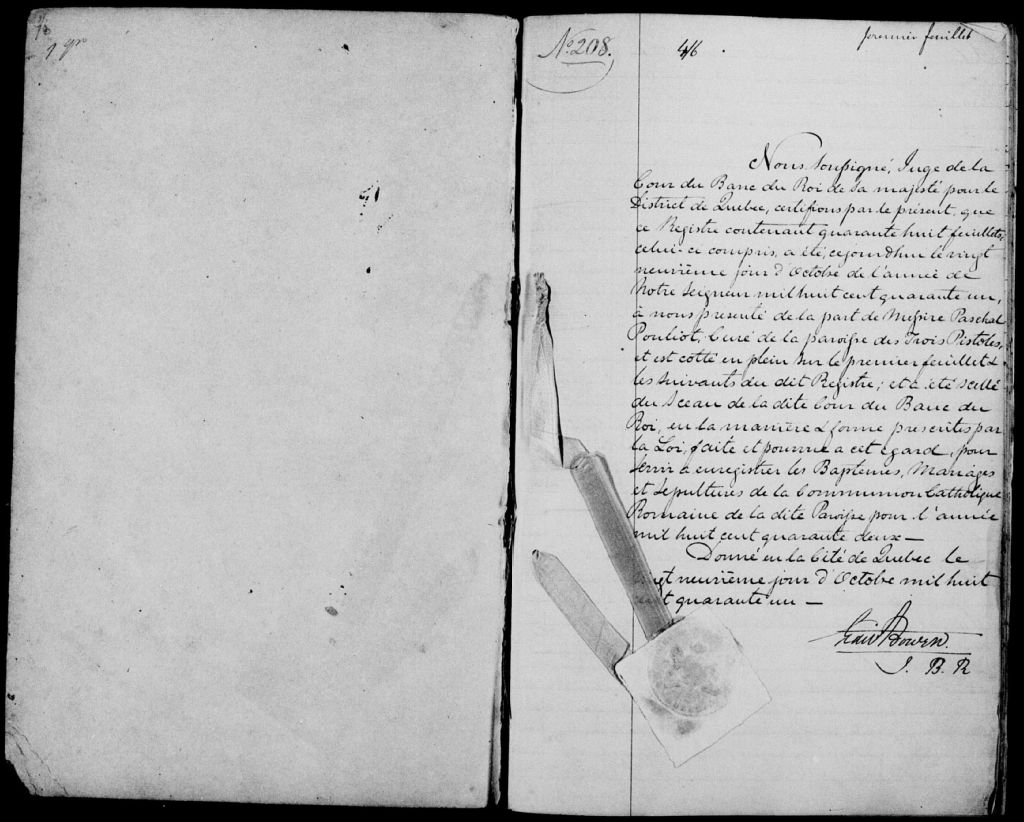 1 qr
No. 208.
46
premier feuillet
Nous soussigné, Juge de la
Cour du Banc du Roi de Sa majesté pour le
District de Quebec, certifions par le présent, que
ce Registre contenant quarante huit feuillets,
celui-ci compris, a été, cejourdhui le vingt
neuvième jour d'Octobre de l'année de
Notre Seigneur mil huit cent quarante un,
à nous presenté de la part de Messire Paschal
Pouliot, Curé de la paroisse des Trois Pistoles,
et est cotté en plein sur le premier feuillet &
les suivants du dit Registre; et a été scellé
du Sceau de la dite Cour du Banc du
Roi, en la manière & forme prescrites par
la Loi, faite et pourvue a cet égard, pour
servir à enregistrer les Baptemes, Mariages
et Sepultures de la Communion Catholique
Romaine de la dite Paroisse pour l'année
mil huit cent quarante deux —
Donné en la Cité de Quebec le
vingt neuvième jour d'Octobe mil huit
cent quarante un —
Edwd Bowen.
J. B. R